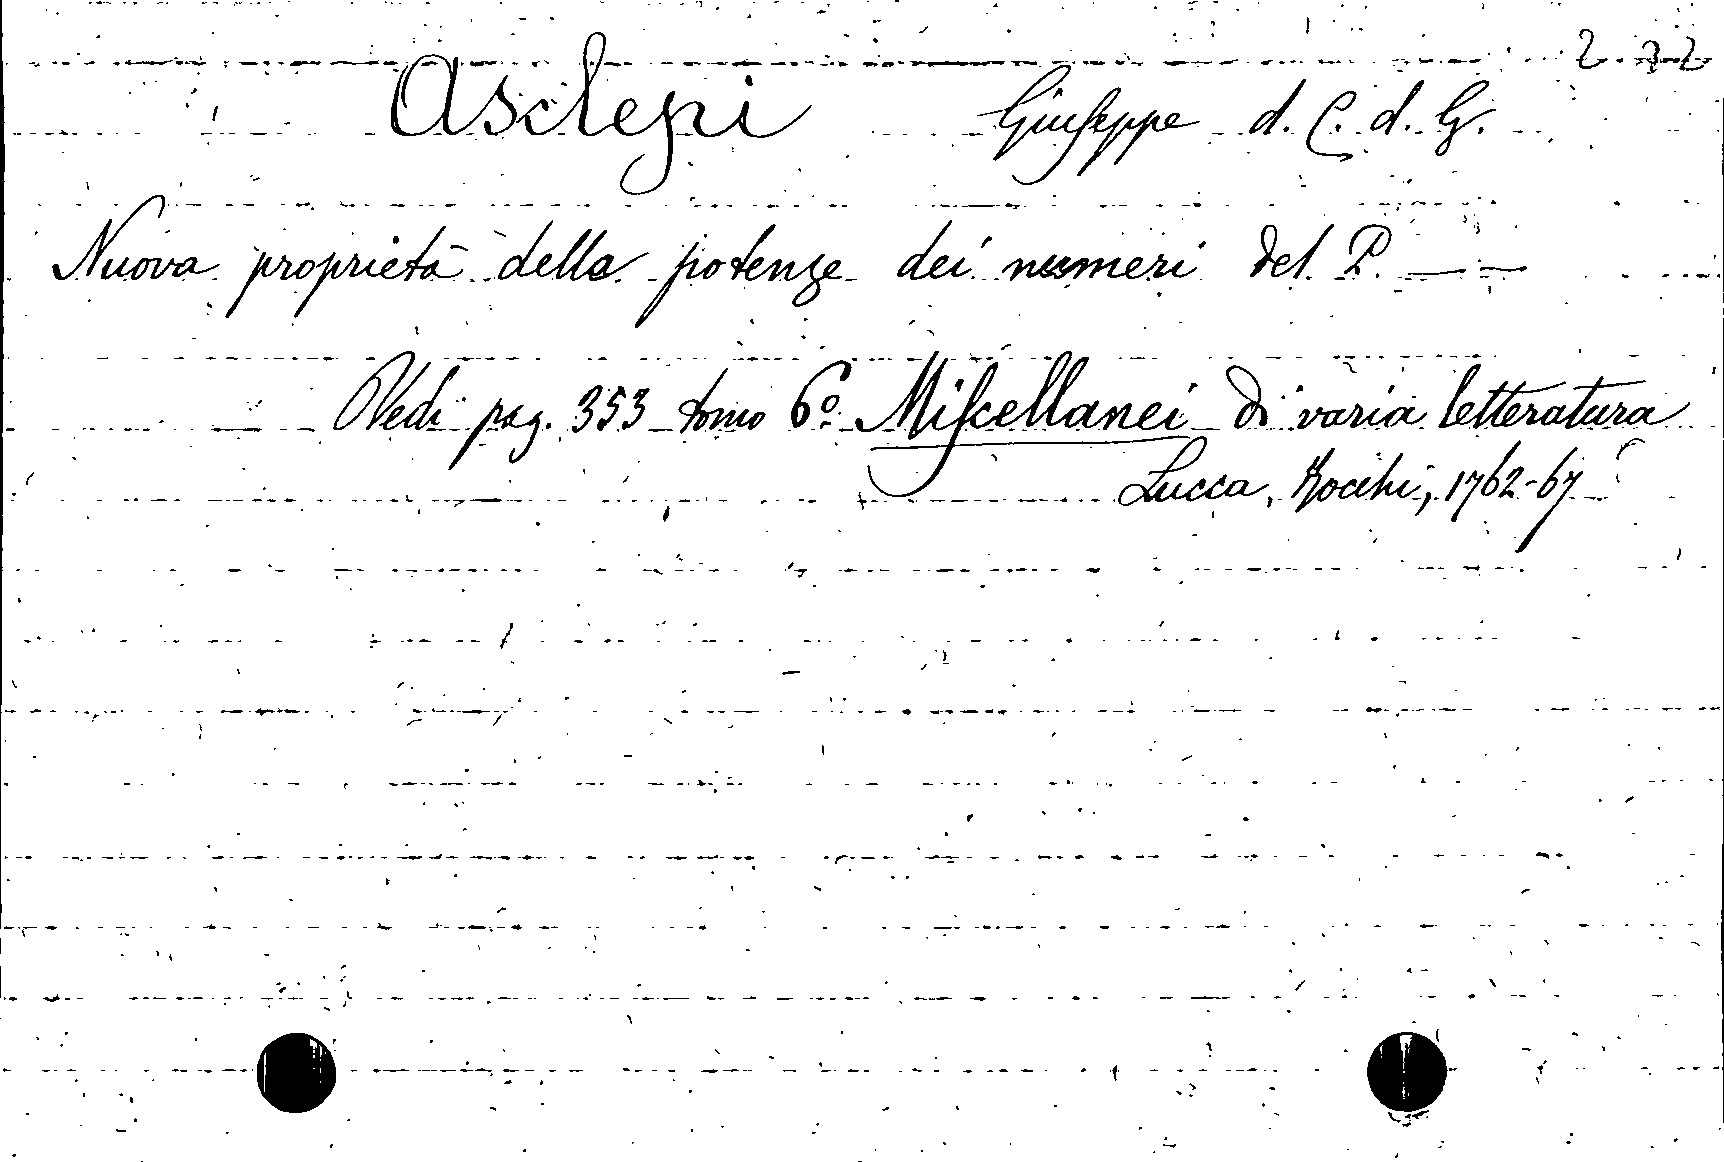 2.22
Asclepi Giuseppe d. C. d. G.
Nuova proprietà delle potenze dei numeri del P. — —
Vedi pag. 353 tomo 6º Miscellanei di varia letteratura
Lucca, Rocchi, 1762-67